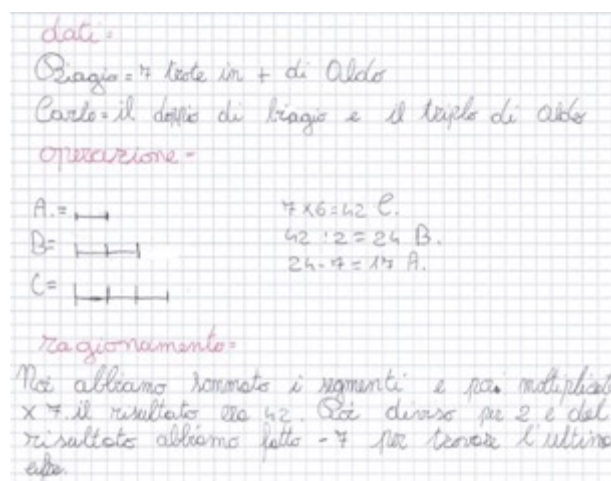 dati=
Biagio= 7 trote in + di Aldo
Carlo= il doppio di biagio e il triplo di aldo
operazione=
A.=
7 x 6 = 42 C.
B=
42 : 2 = 24 B.
24 - 7 = 17 A.
C=
ragionamento=
Noi abbiamo sommato i segmenti e poi moltiplicato
x 7. il risultato era 42. Poi diviso per 2 e dal
risultato abbiamo fatto - 7 per trovare l'ultima